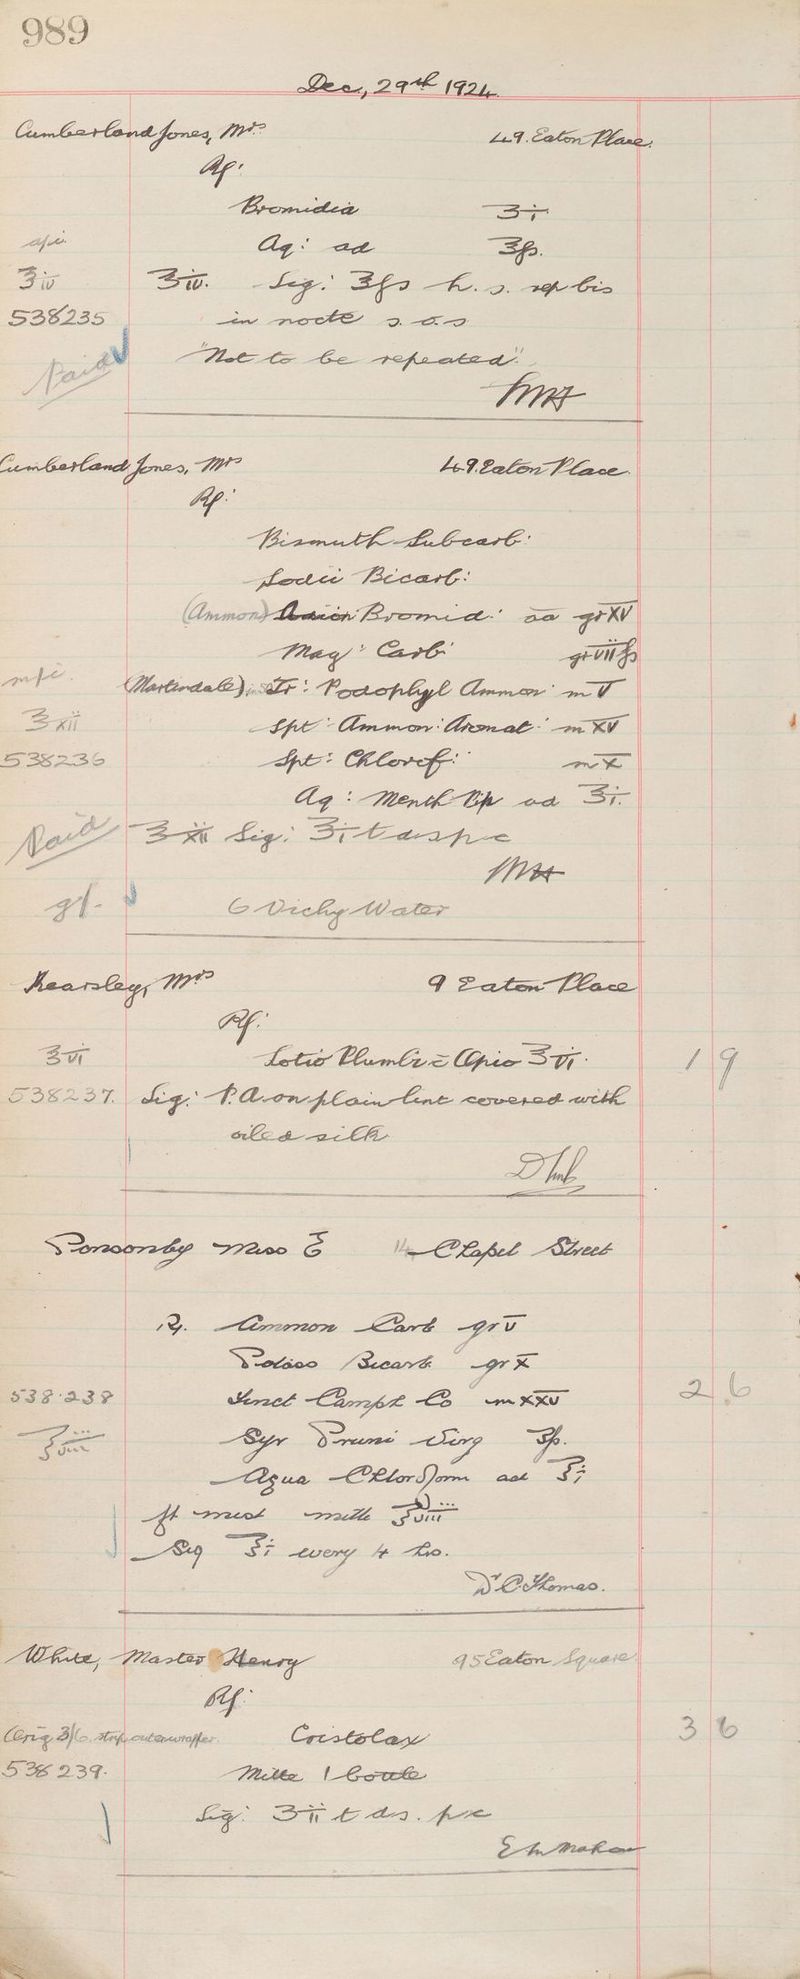 989
Dec, 29th 1924
Cumberland Jones, Mrs 49. Eaton Place.
Rp:
Bromidia ʒi
Aq: ad ℥fs.
℥iv ℥iv. Sig: ℥fs h. s. rep bis
538235 in nocte s. o. s
Paid "Not to be repeated"
Cumberland Jones, Mrs 49. Eaton Place.
Rp:
Bismuth Subcarb:
Sodii Bicarb:
(Ammon) Bromid: aa gr XV
Mag: Carb: gr VIIfs
(Martindale) Tr: Podophyl Ammon: m V
℥xii Spt: Ammon: Aromat: m XV
538236 Spt: Chlorof: m X
Aq: Menth Pip ad ℥i.
Paid ℥xii Sig: ℥i t ds p c
9/- 6 Vichy Water
Kearsley, Mrs 9 Eaton Place
Rp:
℥vi Lotio Plumbi c̄ Opio ℥vi. 1 9
538237. Sig: P.A. on plain lint covered with
oiled silk
Ponsonby Miss E 14 Chapel Street
Rx. Ammon Carb gr V
Potass Bicarb gr X
538.238 Tinct Camph Co m XXV 2 6
℥viii Syr Pruni Virg ʒfs.
Aqua Chloroform ad ℥i
ft mist mitte ℥viii
Sig ℥i every 4 hrs.
Dr C. Thomas.
White, Master Henry 95 Eaton Square
Rp:
(Orig 3/6. strip outer wrapper. Cristolax 3 6
538239. Mitte 1 bottle
Sig: ʒii t ds. p c